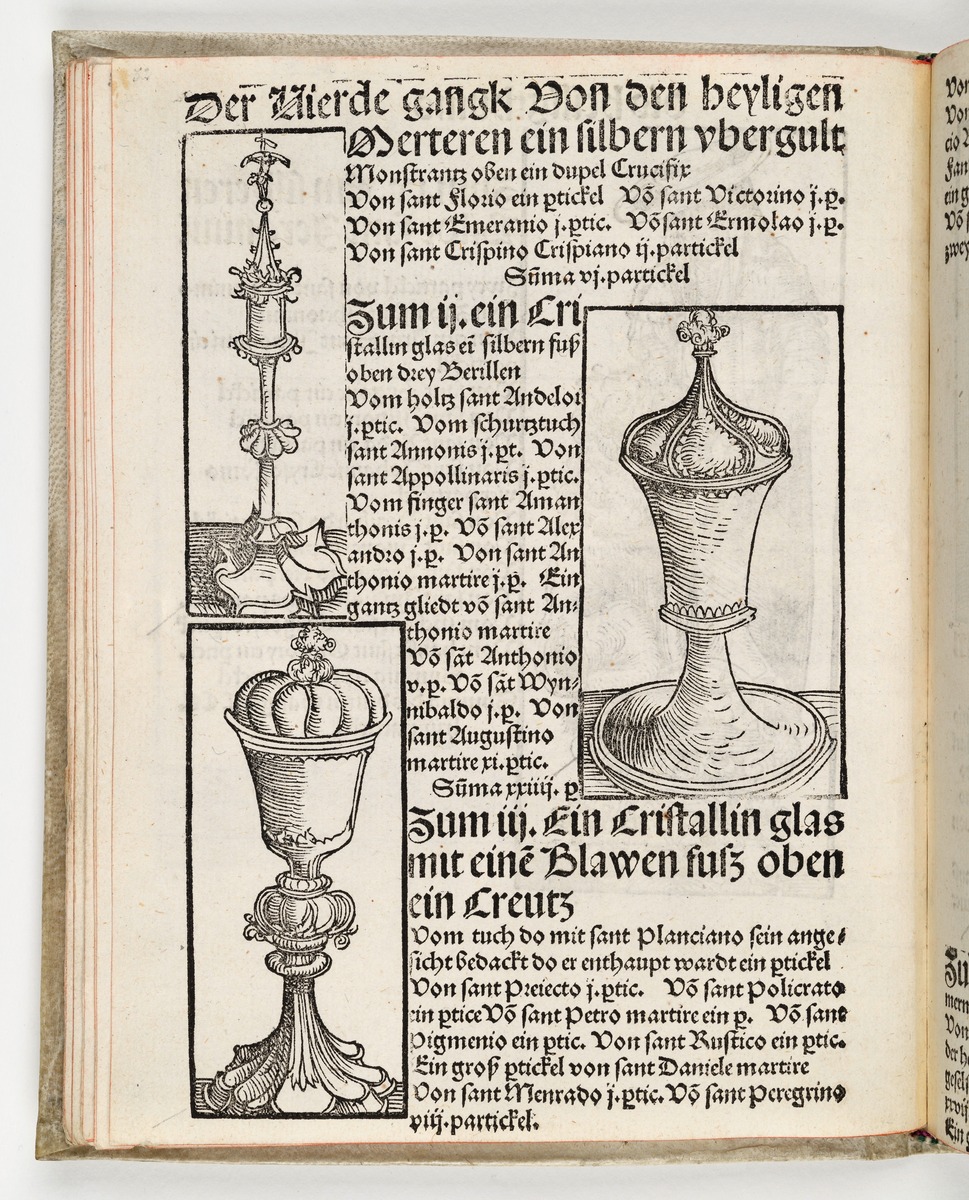 Der Vierde gangk Von den heyligen
Merteren ein silbern vbergult
Monstrantz oben ein dupel Crucifix
Von sant Florio ein ꝑtickel Võ sant Victorino j.ꝑ.
Von sant Emeranio j.ꝑtic. Võ sant Ermolao j.ꝑ.
Von sant Crispino Crispiano ij.partickel
Sũma vj.partickel
Zum ij. ein Cri
stallin glas eĩ silbern fuß
oben drey Berillen
Vom holtz sant Andeloi
j.ꝑtic. Vom schurtztuch
sant Annonis j.ꝑt. Von
sant Appollinaris j.ꝑtic.
Vom finger sant Aman
thonis j.ꝑ. Võ sant Alex
andro j.ꝑ. Von sant An
thonio martire j.ꝑ. Ein
gantz gliedt võ sant An⸗
thonio martire
Võ sãt Anthonio
v.ꝑ. Võ sãt Wyn⸗
nibaldo j.ꝑ. Von
sant Augustino
martire xi.ꝑtic.
Sũma xxiiij. ꝑ
Zum iij. Ein Cristallin glas
mit einẽ Blawen fusz oben
ein Creutz
Vom tuch do mit sant Planciano sein ange⸗
sicht bedackt do er enthaupt wardt ein ꝑtickel
Von sant Preiecto j.ꝑtic. Võ sant Policrato
ein ꝑtice Võ sant Petro martire ein ꝑ. Võ sant
Pigmenio ein ꝑtic. Von sant Rustico ein ꝑtic.
Ein groß ꝑtickel von sant Daniele martire
Von sant Menrado j.ꝑtic. Võ sant Peregrino
viij.partickel.